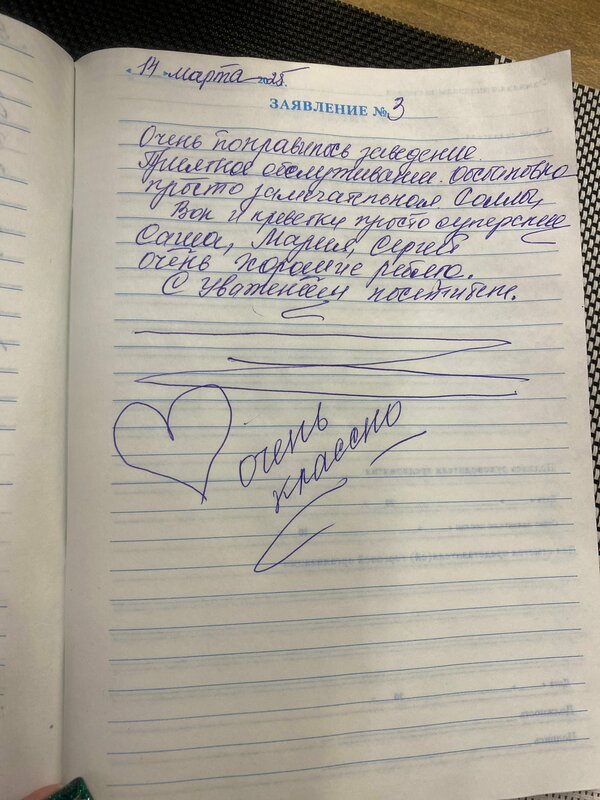 « 14 » марта 2025г.
ЗАЯВЛЕНИЕ № 3
Очень понравилось заведение.
Приятное обслуживание. Обстановка
просто замечательная
и креветки просто суперские
Саша, Мария, Сергей
очень хорошие ребята.
С Уважением посетители.
очень
классно